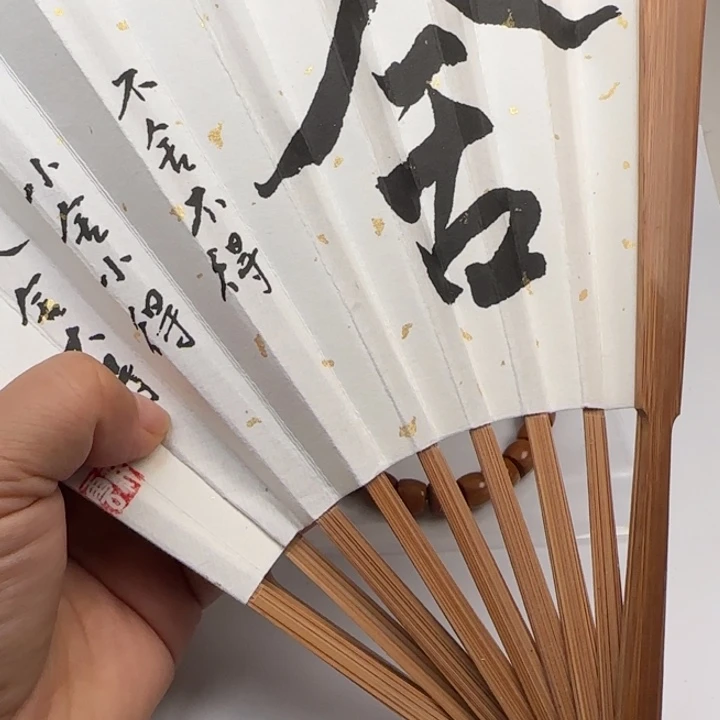 舍
不舍不得
小舍小得
舍大得